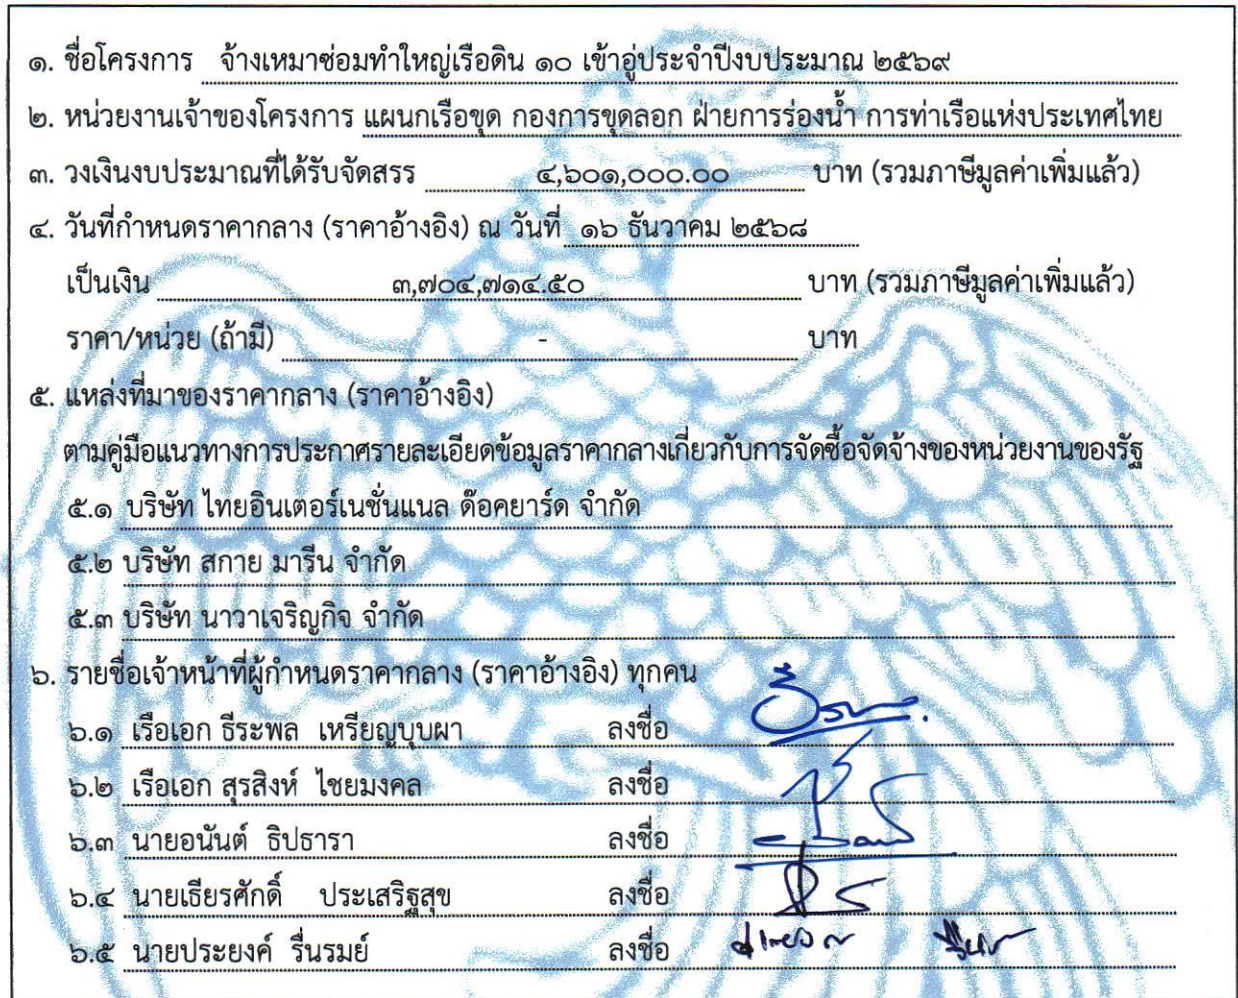 ๑. ชื่อโครงการ จ้างเหมาซ่อมทำใหญ่เรือดิน ๑๐ เข้าอู่ประจำปีงบประมาณ ๒๕๖๙
๒. หน่วยงานเจ้าของโครงการ แผนกเรือขุด กองการขุดลอก ฝ่ายการร่องน้ำ การท่าเรือแห่งประเทศไทย
๓. วงเงินงบประมาณที่ได้รับจัดสรร ๔,๖๐๑,๐๐๐.๐๐ บาท (รวมภาษีมูลค่าเพิ่มแล้ว)
๔. วันที่กำหนดราคากลาง (ราคาอ้างอิง) ณ วันที่ ๑๖ ธันวาคม ๒๕๖๘
เป็นเงิน ๓,๗๐๔,๗๑๔.๕๐ บาท (รวมภาษีมูลค่าเพิ่มแล้ว)
ราคา/หน่วย (ถ้ามี) - บาท
๕. แหล่งที่มาของราคากลาง (ราคาอ้างอิง)
ตามคู่มือแนวทางการประกาศรายละเอียดข้อมูลราคากลางเกี่ยวกับการจัดซื้อจัดจ้างของหน่วยงานของรัฐ
๕.๑ บริษัท ไทยอินเตอร์เนชั่นแนล ด๊อคยาร์ด จำกัด
๕.๒ บริษัท สกาย มารีน จำกัด
๕.๓ บริษัท นาวาเจริญกิจ จำกัด
๖. รายชื่อเจ้าหน้าที่ผู้กำหนดราคากลาง (ราคาอ้างอิง) ทุกคน
๖.๑ เรือเอก ธีระพล เหรียญบุบผา ลงชื่อ
๖.๒ เรือเอก สุรสิงห์ ไชยมงคล ลงชื่อ
๖.๓ นายอนันต์ ธิปธารา ลงชื่อ
๖.๔ นายเธียรศักดิ์ ประเสริฐสุข ลงชื่อ
๖.๕ นายประยงค์ รื่นรมย์ ลงชื่อ